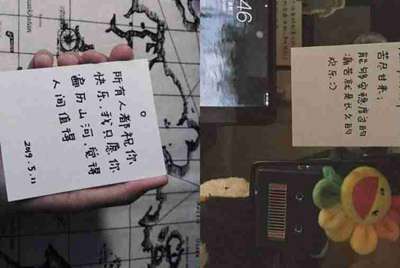 所有人都祝你
快乐、我只愿你
遍历山河 觉得
人间值得
2019.5.11
46
苦尽甘来,
能够安稳度过的
痛苦就是
欢乐:)